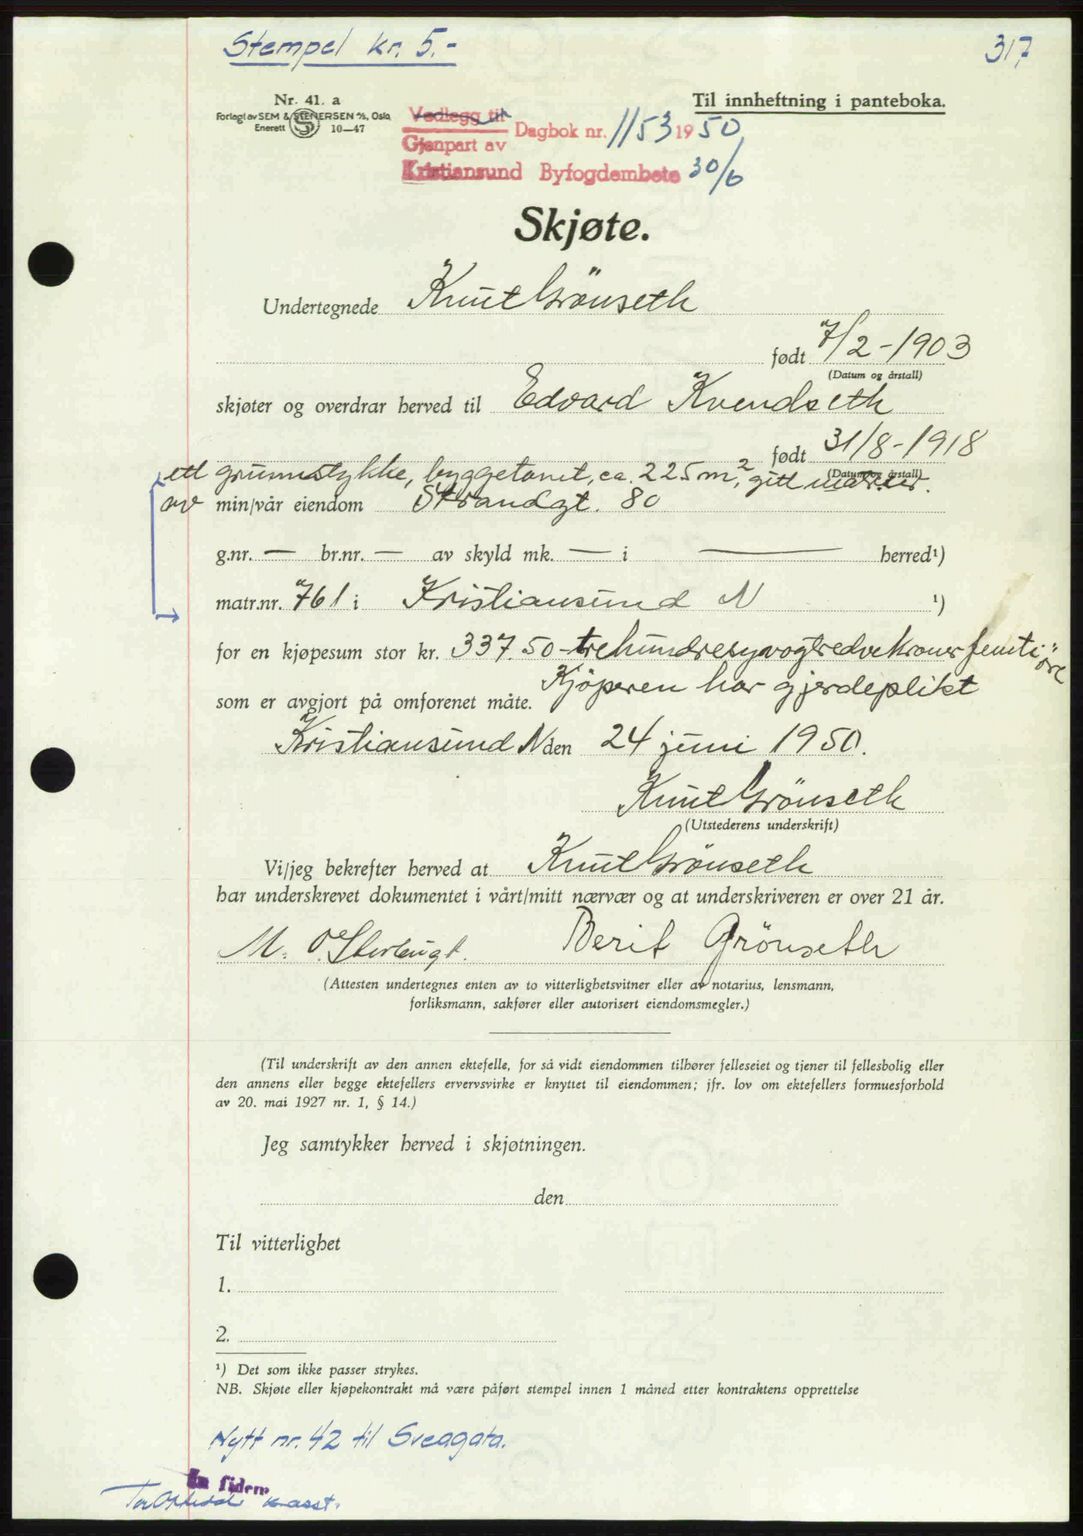 Stempel kr. 5.-
317
Nr. 41. a
Forlagt av SEM & STENERSEN A/S, Oslo
Enerett S 10—47
Til innheftning i panteboka.
Vedlegg til
Gjenpart av
Dagbok nr. 1153 1950
Kristiansund Byfogdembete 30/6
Skjøte.
Undertegnede Knut Grönseth
født 7/2-1903
(Datum og årstall)
skjøter og overdrar herved til Edvard Kvendseth
født 31/8-1918
(Datum og årstall)
ett grunnstykke, byggetomt, ca. 225 m², gitt
av min/vår eiendom Strandgt. 80
g.nr. — br.nr. — av skyld mk. — i — herred¹)
matr.nr. 761 i Kristiansund N ¹)
for en kjøpesum stor kr. 337.50 - trehundresyvogtredvekroner femti öre
som er avgjort på omforenet måte. Kjöperen har gjerdeplikt
Kristiansund N den 24 juni 1950.
Knut Grönseth
(Utstederens underskrift)
Vi/jeg bekrefter herved at Knut Grönseth
har underskrevet dokumentet i vårt/mitt nærvær og at underskriveren er over 21 år.
M. Berit Grönseth
(Attesten undertegnes enten av to vitterlighetsvitner eller av notarius, lensmann,
forliksmann, sakfører eller autorisert eiendomsmegler.)
(Til underskrift av den annen ektefelle, for så vidt eiendommen tilhører felleseiet og tjener til fellesbolig eller
den annens eller begge ektefellers ervervsvirke er knyttet til eiendommen; jfr. lov om ektefellers formuesforhold
av 20. mai 1927 nr. 1, § 14.)
Jeg samtykker herved i skjøtningen.
den
Til vitterlighet
1.
2.
¹) Det som ikke passer strykes.
NB. Skjøte eller kjøpekontrakt må være påført stempel innen 1 måned etter kontraktens opprettelse
Nytt nr. 42 til Sveagata.
In fidem